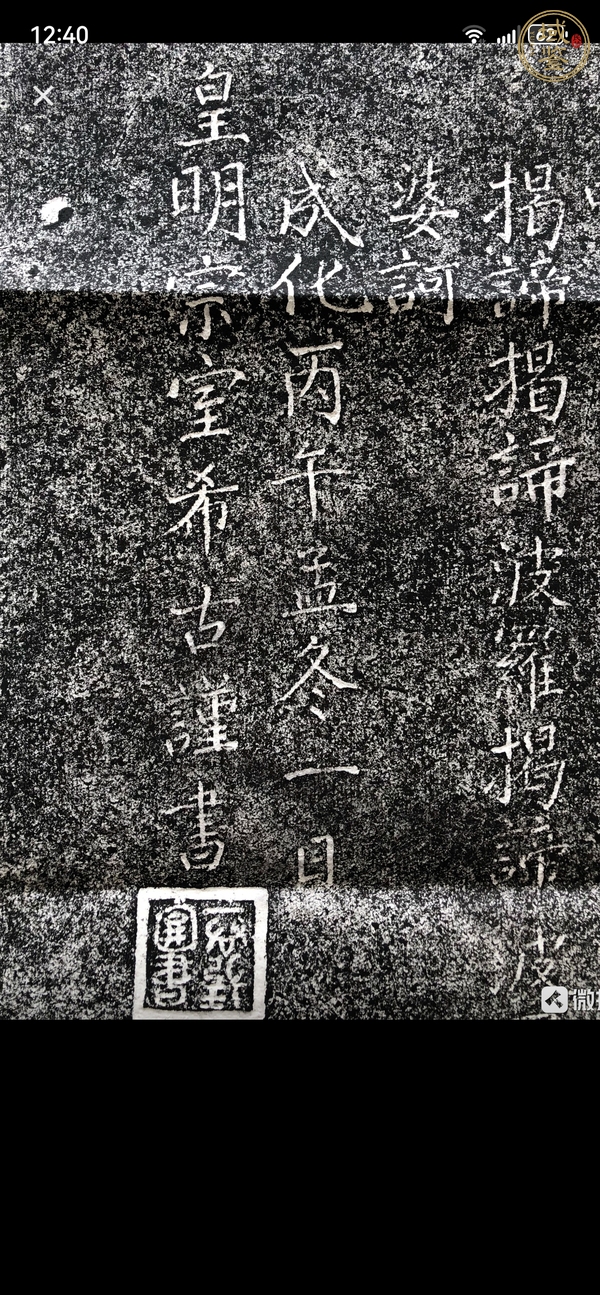 12:40
62
揭諦揭諦波羅揭諦波
婆訶
成化丙午孟冬一日
皇明宗室希古謹書
微拍